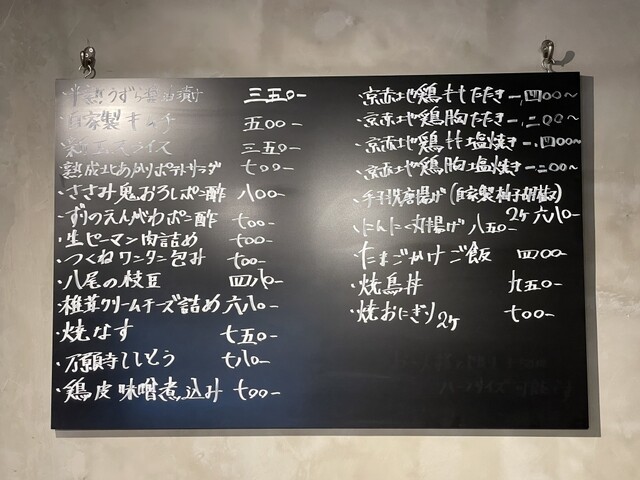 ・半熟うずら醤油漬け 三五〇-
・自家製キムチ 五〇〇-
スライス 三五〇-
・熟成北あかりポテトサラダ 七〇〇-
・ささみ鬼おろしポン酢 八〇〇-
・ずりのえんがわポン酢 七〇〇-
・生ピーマン肉詰め 七〇〇-
・つくねワンタン包み 七〇〇-
・八尾の枝豆 四八〇-
・椎茸クリームチーズ詰め 六八〇-
・焼なす 七五〇-
・万願寺ししとう 七八〇-
・鶏皮味噌煮込み 七〇〇-
・京赤地鶏モモたたき 一、四〇〇~
・京赤地鶏胸たたき 一、二〇〇~
・京赤地鶏モモ塩焼き 一、四〇〇~
・京赤地鶏胸塩焼き 一、二〇〇~
・手羽先唐揚げ(自家製柚子胡椒)
2ケ 六八〇-
・にんにく丸揚げ 八五〇-
・たまごかけご飯 四〇〇-
・焼鳥丼 九五〇-
・焼おにぎり 2ケ 七〇〇-